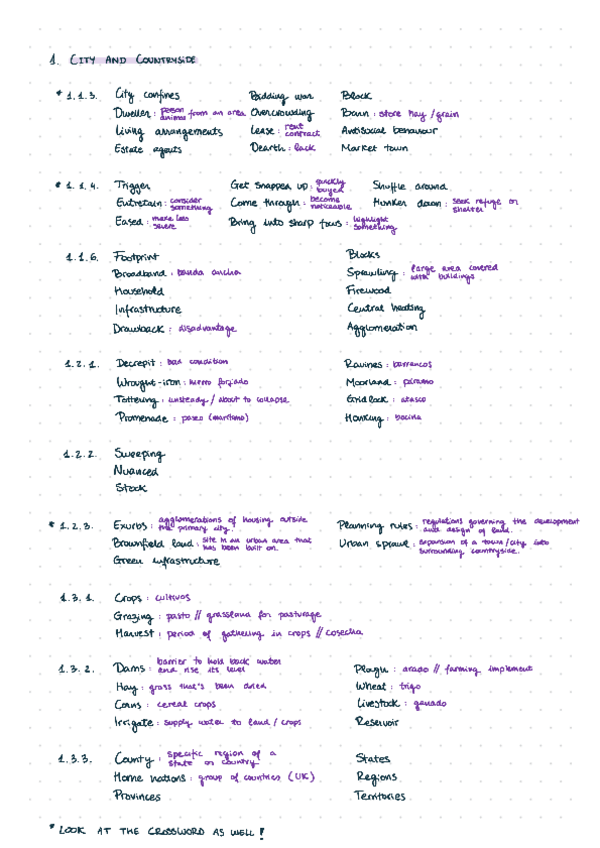 1. CITY AND COUNTRYSIDE
* 1.1.3. City confines Bidding war Block
Dweller: person animal from an area Overcrowding Barn: store hay/grain
Living arrangements Lease: rent contract Antisocial behaviour
Estate agents Dearth: lack Market town
* 1.1.4. Trigger Get snapped up: quickly buyed Shuffle around
Entretain: consider something Come through: become noticeable Hunker down: seek refuge or shelter
Eased: make less severe Bring into sharp focus: highlight something
1.1.6. Footprint Blocks
Broadband: banda ancha Sprawling: large area covered with buildings
Household Firewood
Infrastructure Central heating
Drawback: disadvantage Agglomeration
1.2.1. Decrepit: bad condition Ravines: barrancos
Wrought-iron: hierro forjado Moorland: páramo
Tottering: unsteady/about to collapse Gridlock: atasco
Promenade: paseo (marítimo) Honking: bocina
1.2.2. Sweeping
Nuanced
Stock
* 1.2.3. Exurbs: agglomerations of housing outside the primary city. Planning rules: regulations governing the development and design of land.
Brownfield land: site in an urban area that has been built on. Urban sprawl: expansion of a town/city into surrounding countryside.
Green infrastructure
1.3.1. Crops: cultivos
Grazing: pasto // grassland for pasturage
Harvest: period of gathering in crops // cosecha
1.3.2. Dams: barrier to hold back water and rise its level Plough: arado // farming implement
Hay: grass that's been dried Wheat: trigo
Corns: cereal crops Livestock: ganado
Irrigate: supply water to land/crops Reservoir
1.3.3. County: specific region of a state or country States
Home nations: group of countries (UK) Regions
Provinces Territories
* LOOK AT THE CROSSWORD AS WELL!